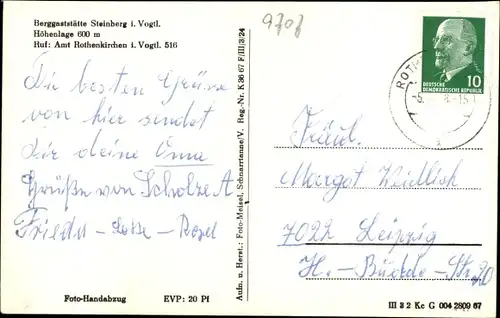 Berggaststätte Steinberg i. Vogtl.
Höhenlage 600 m
Ruf: Amt Rothenkirchen i. Vogtl. 516
9708
Die besten Grüsse
von hier sendet
Dir deine Oma
Grüße von Scholze A
Frieda
Foto-Handabzug EVP: 20 Pf
Aufn. u. Herst.: Foto-Meisel, Schnarrtanne/V. Reg.-Nr. K 36 67 F/III/3/24
10
DEUTSCHE
DEMOKRATISCHE REPUBLIK
ROTH
Fräul.
Margot
7022 Leipzig
III 3 2 Kc G 004 2809 67